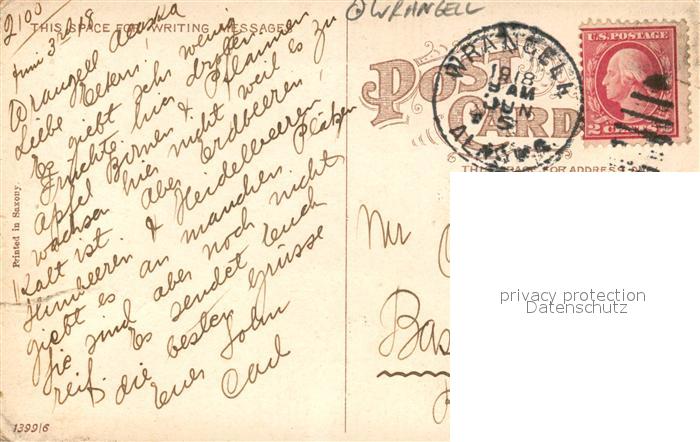 2100
@WRANGELL
THIS SPACE FOR WRITING MESSAGES
Wrangell Alaska
Juni 3 1918
Liebe Eltern!
Es giebt sehr wenig
Früchte hier droben
Apfel Birnen & Pflaumen
wachsen hier nicht weil es zu
Kalt ist. Aber Erdbeeren,
Himbeeren & Heidelbeeren
giebt es an manchen Plätzen
Sie sind aber noch nicht
reif. Es sendet Euch
die besten Grüsse
Euer Sohn
Carl
Printed in Saxony.
1399/6
POST CARD
WRANGELL
1918
9 AM
JUN
5
ALASKA
U.S. POSTAGE
2 CENTS 2
THIS SPACE FOR ADDRESS
Mr
Bas
privacy protection
Datenschutz